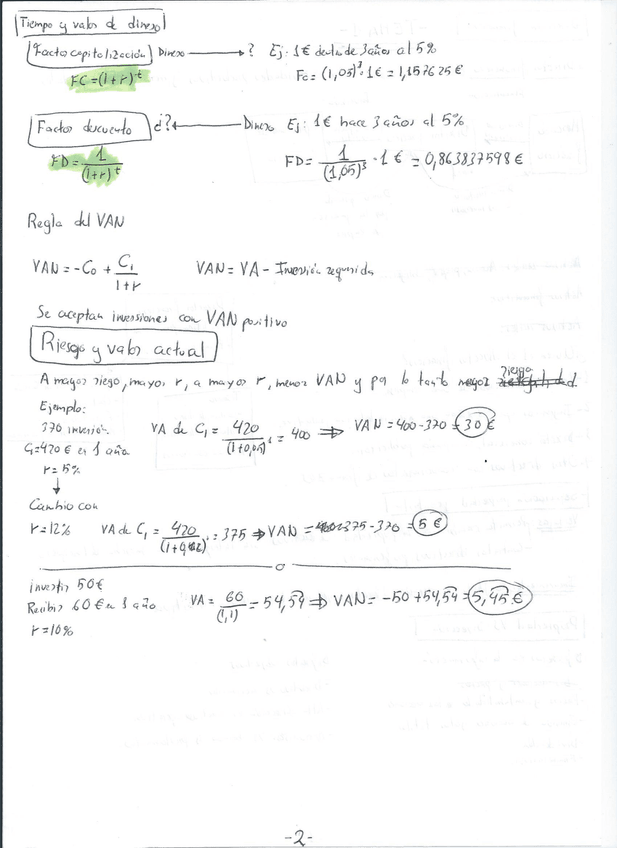 Tiempo y valor de dinero
Factor capitalización Dinero → ? Ej: 1€ dentro de 3 años al 5%
FC=(1+r)^t Fc = (1,05)^3·1€ = 1,157625€
Factor descuento ¿? ← Dinero Ej: 1€ hace 3 años al 5%
FD=1/(1+r)^t FD= 1/(1,05)^3 · 1€ = 0,863837598€
Regla del VAN
VAN = -C0 + C1/1+r VAN = VA - Inversión requerida
Se aceptan inversiones con VAN positivo
Riesgo y valor actual
A mayor riego, mayor r, a mayor r, menor VAN y por lo tanto mayor riesgo
Ejemplo:
370 inversión. VA de C1 = 420/(1+0,05) = 400 ⇒ VAN = 400-370 = 30€
C1=420€ en 1 año
r=5%
↓
Cambio con
r=12% VA de C1 = 420/(1+0,12) = 375 ⇒ VAN = 375-370 = 5€
invertir 50€
Recibir 60€ en 1 año VA = 60/(1,1) = 54,54 ⇒ VAN = -50+54,54 = 5,45€
r=10%
-2-